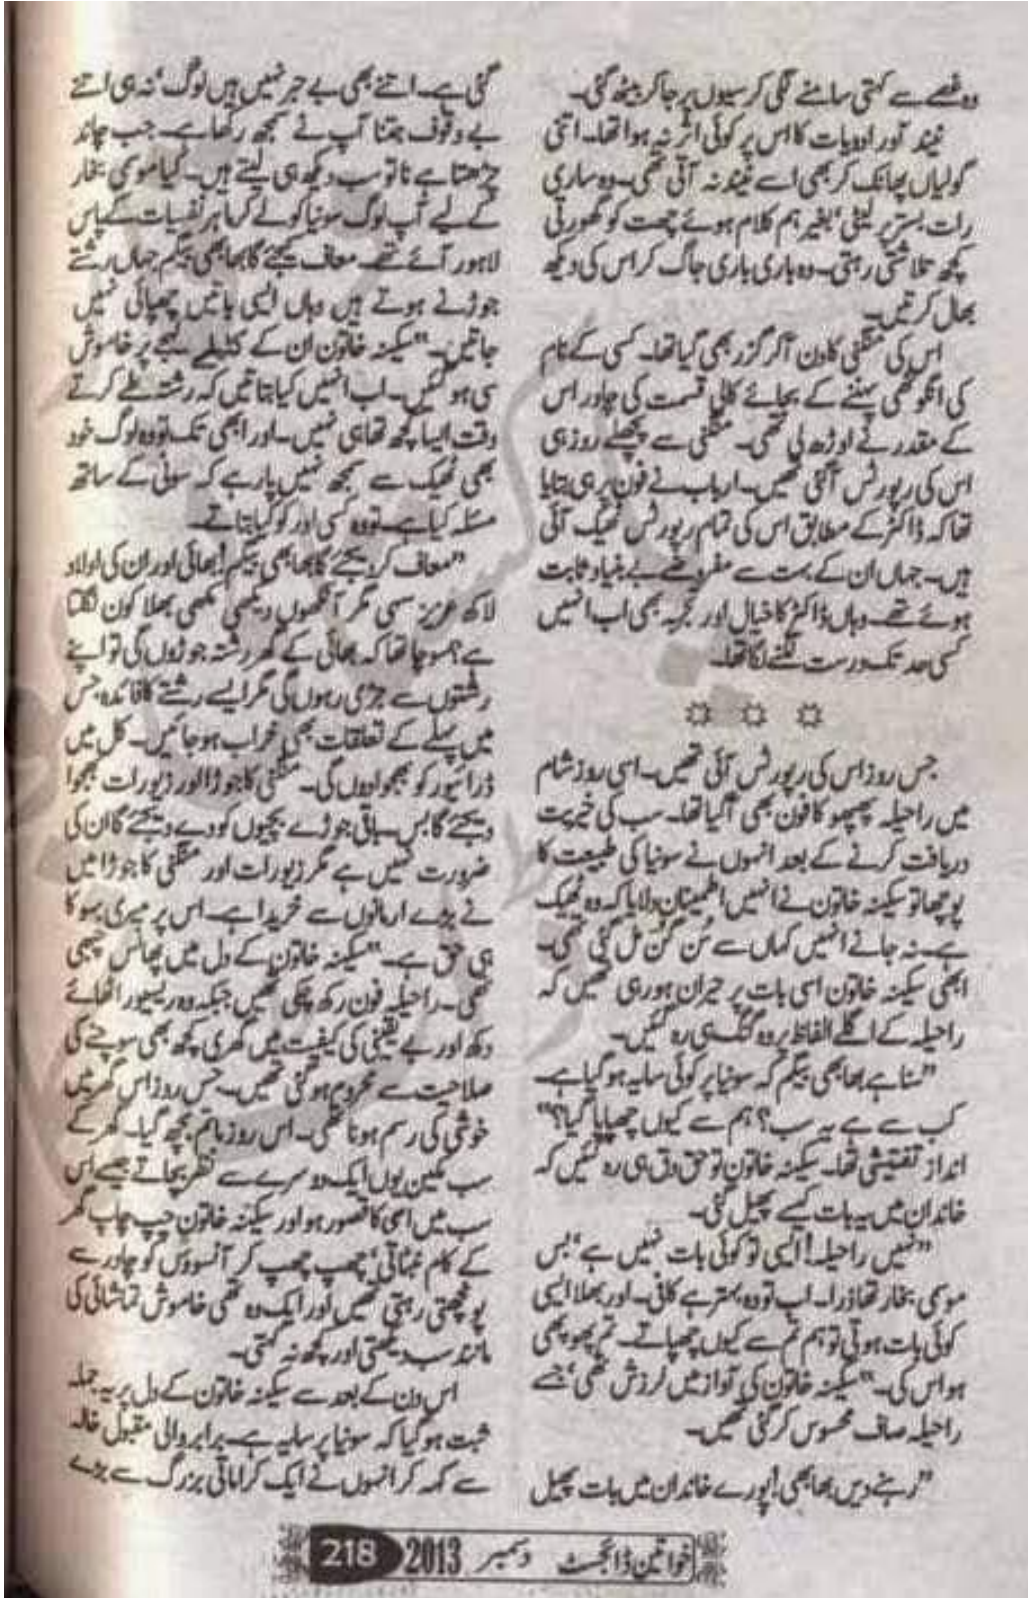 وہ غصے سے کہتی سامنے لگی کرسیوں پر جا کر بیٹھ گئی۔
نیند آور ادویات کا اس پر کوئی اثر نہ ہوا تھا۔ اتنی
گولیاں پھانک کر بھی اسے نیند نہ آئی تھی۔ وہ ساری
رات بستر پر لیٹی، بغیر ہم کلام ہوئے چھت کو گھورتی
کچھ تلاشتی رہتی۔ وہ باری باری جاگ کر اس کی دیکھ
بھال کرتیں۔
اس کی منگنی کا دن آ کر گزر بھی گیا تھا۔ کسی کے نام
کی انگوٹھی پہننے کے بجائے کالی قسمت کی چادر اس
کے مقدر نے اوڑھ لی تھی۔ منگنی سے پچھلے روز ہی
اس کی رپورٹس آگئی تھیں۔ ارباب نے فون پر ہی بتایا
تھا کہ ڈاکٹر کے مطابق اس کی تمام رپورٹس ٹھیک آئی
ہیں۔ جہاں ان کے بہت سے مفروضے بے بنیاد ثابت
ہوئے تھے۔ وہاں ڈاکٹر کا خیال اور تجربہ بھی اب انہیں
کسی حد تک درست لگنے لگا تھا۔
جس روز اس کی رپورٹس آئی تھیں۔ اسی روز شام
میں راحیلہ پھپھو کا فون بھی آگیا تھا۔ سب کی خیریت
دریافت کرنے کے بعد انہوں نے سونیا کی طبیعت کا
پوچھا تو سکینہ خاتون نے انہیں اطمینان دلایا کہ وہ ٹھیک
ہے۔ نہ جانے انہیں کہاں سے سُن گُن مل گئی تھی۔
ابھی سکینہ خاتون اسی بات پر حیران ہو رہی تھیں کہ
راحیلہ کے اگلے الفاظ پر وہ گنگ ہی رہ گئیں۔
"سنا ہے بھابھی بیگم کہ سونیا پر کوئی سایہ ہو گیا ہے۔
کب سے ہے یہ سب؟ ہم سے کیوں چھپایا گیا؟"
انداز تفتیشی تھا۔ سکینہ خاتون تو حق دق ہی رہ گئیں کہ
خاندان میں یہ بات کیسے پھیل گئی۔
"نہیں راحیلہ! ایسی تو کوئی بات نہیں ہے، بس
موسمی بخار تھا ذرا۔ اب تو وہ بہتر ہے کافی۔ اور بھلا ایسی
کوئی بات ہوتی تو ہم تم سے کیوں چھپاتے۔ تم پھوپھی
ہو اس کی۔" سکینہ خاتون کی آواز میں لرزش تھی، جسے
راحیلہ صاف محسوس کر گئی تھیں۔
"رہنے دیں بھابھی! پورے خاندان میں بات پھیل
گئی ہے۔ اتنے بھی بے خبر نہیں ہیں لوگ، نہ ہی اتنے
بے وقوف جتنا آپ نے سمجھ رکھا ہے۔ جب چاند
چڑھتا ہے نا تو سب دیکھ ہی لیتے ہیں۔ کیا موسمی بخار
کے لیے آپ لوگ سونیا کو لے کر ماہر نفسیات کے پاس
لاہور آئے تھے۔ معاف کیجئے گا بھابھی بیگم جہاں رشتے
جوڑنے ہوتے ہیں وہاں ایسی باتیں چھپائی نہیں
جاتیں۔" سکینہ خاتون ان کے کٹیلے لہجے پر خاموش
سی ہو گئیں۔ اب انہیں کیا بتاتیں کہ رشتہ طے کرتے
وقت ایسا کچھ تھا ہی نہیں۔ اور ابھی تک تو وہ لوگ خود
بھی ٹھیک سے سمجھ نہیں پا رہے کہ سونی کے ساتھ
مسئلہ کیا ہے۔ تو وہ کسی اور کو کیا بتاتے۔
"معاف کر دیجئے گا بھابھی بیگم! بھائی اور ان کی اولاد
لاکھ عزیز سہی مگر آنکھوں دیکھی مکھی بھلا کون نگلتا
ہے؟ سوچا تھا کہ بھائی کے گھر رشتہ جوڑوں گی تو اپنے
رشتوں سے جڑی رہوں گی مگر ایسے رشتے کا فائدہ جس
میں پہلے کے تعلقات بھی خراب ہو جائیں۔ کل میں
ڈرائیور کو بھجوا دوں گی۔ منگنی کا جوڑا اور زیورات بھجوا
دیجئے گا بس۔ باقی جوڑے بچیوں کو دے دیجئے گا ان کی
ضرورت نہیں ہے مگر زیورات اور منگنی کا جوڑا میں
نے بڑے ارمانوں سے خریدا ہے۔ اس پر میری بہو کا
ہی حق ہے۔" سکینہ خاتون کے دل میں پھانس چبھی
تھی۔ راحیلہ فون رکھ چکی تھیں جبکہ وہ ریسیور اٹھائے
دکھ اور بے یقینی کی کیفیت میں گھری کچھ بھی سوچنے کی
صلاحیت سے محروم ہو گئی تھیں۔ جس روز اس گھر میں
خوشی کی رسم ہونا تھی۔ اس روز ماتم بچھ گیا۔ گھر کے
سب مکین یوں ایک دوسرے سے نظر بچاتے جیسے اس
سب میں اسی کا قصور ہو اور سکینہ خاتون چپ چاپ گھر
کے کام نمٹاتی، چھپ چھپ کر آنسوؤں کو چادر سے
پونچھتی رہتی تھیں اور ایک وہ تھی خاموش تماشائی کی
مانند سب دیکھتی اور کچھ نہ کہتی۔
اس دن کے بعد سے سکینہ خاتون کے دل پر یہ جملہ
ثبت ہو گیا کہ سونیا پر سایہ ہے۔ برابر والی مقبول خالہ
سے کہہ کر انہوں نے ایک کراماتی بزرگ سے بڑے
خواتین ڈائجسٹ دسمبر 2013 218